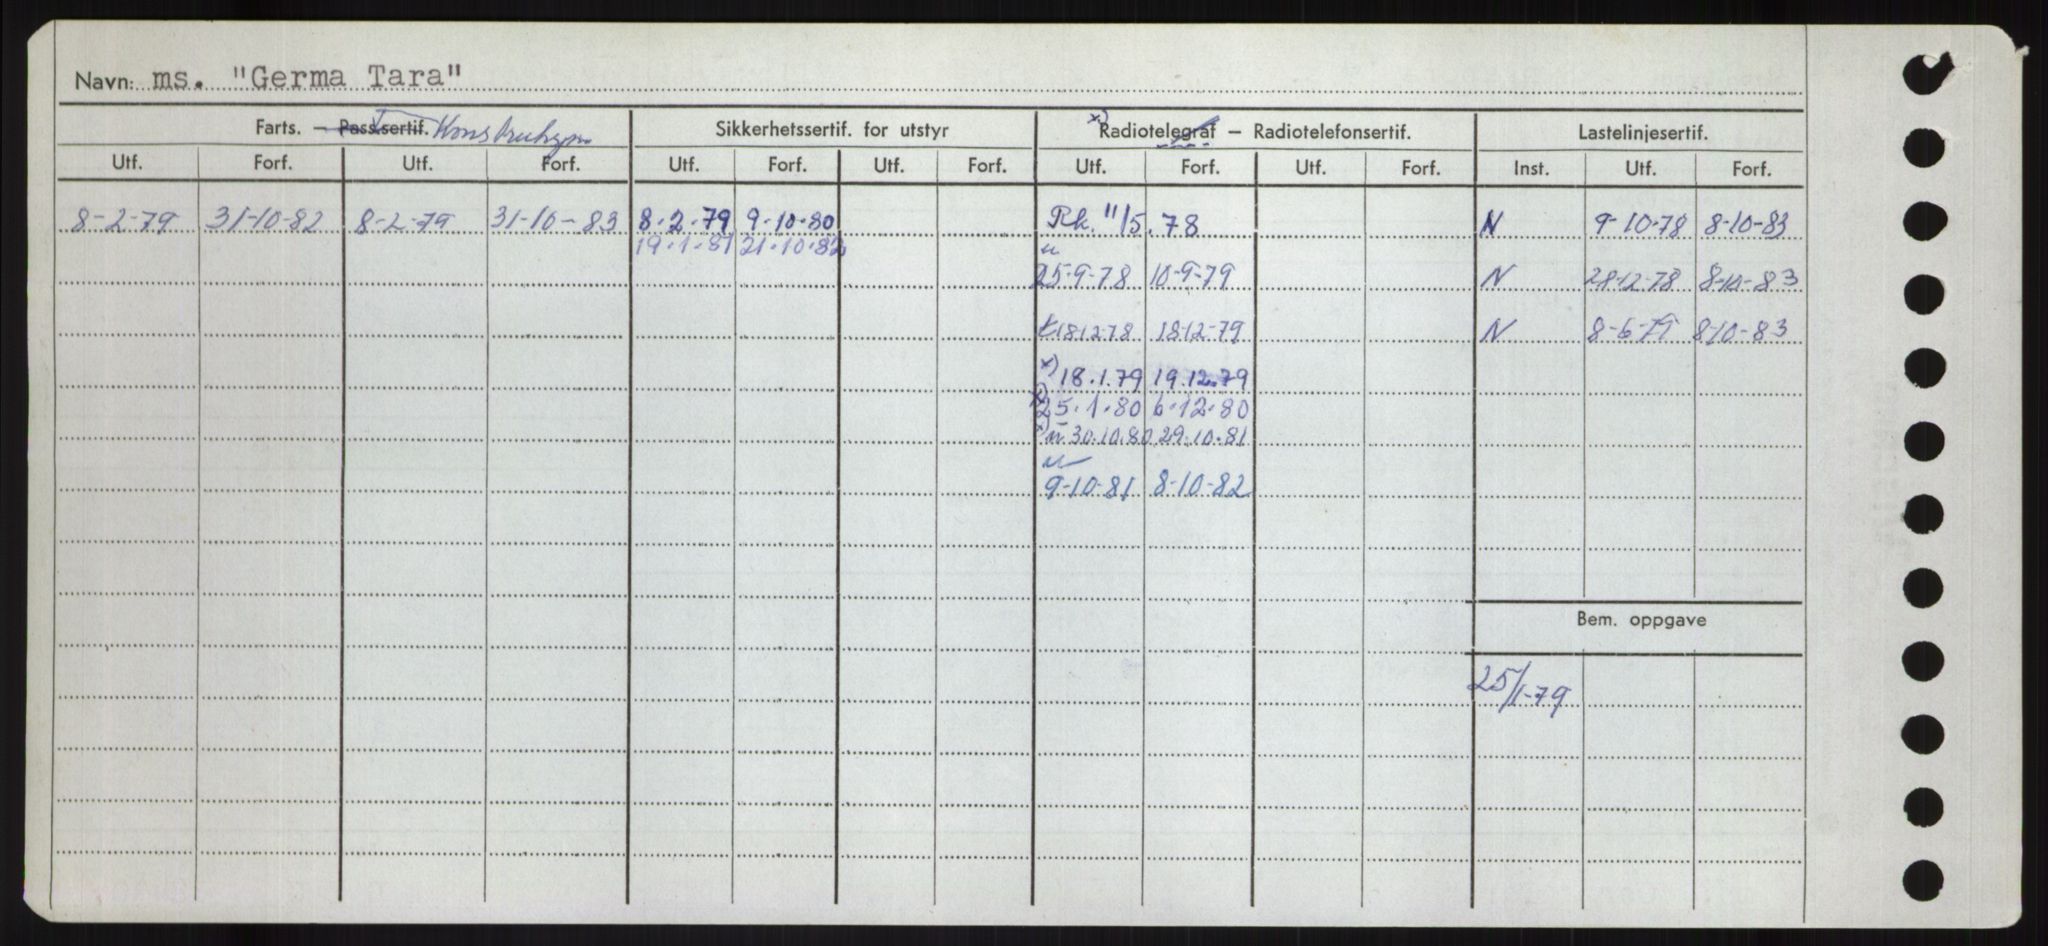 Navn: ms. "Germa Tara"
Farts. – Pass.sertif. Sikkerhetssertif. for utstyr x) Radiotelegraf – Radiotelefonsertif. Lastelinjesertif.
Utf. Forf. Utf. Forf. Utf. Forf. Utf. Forf. Utf. Forf. Utf. Forf. Inst. Utf. Forf.
8-2-79 31-10-82 8-2-79 31-10-83 8.2.79 9.10.80 Rk. 11/5.78 N 9-10-78 8-10-83
19.1.81 21.10.82
25-9-78 10-9-79 N 28-12-78 8-10-83
18-12-78 18-12-79 N 8-6-79 8-10-83
x) 18.1.79 19.12.79
x) 25.1.80 6.12.80
x) 30.10.80 29.10.81
9-10-81 8-10-82
Bem. oppgave
25/1-79